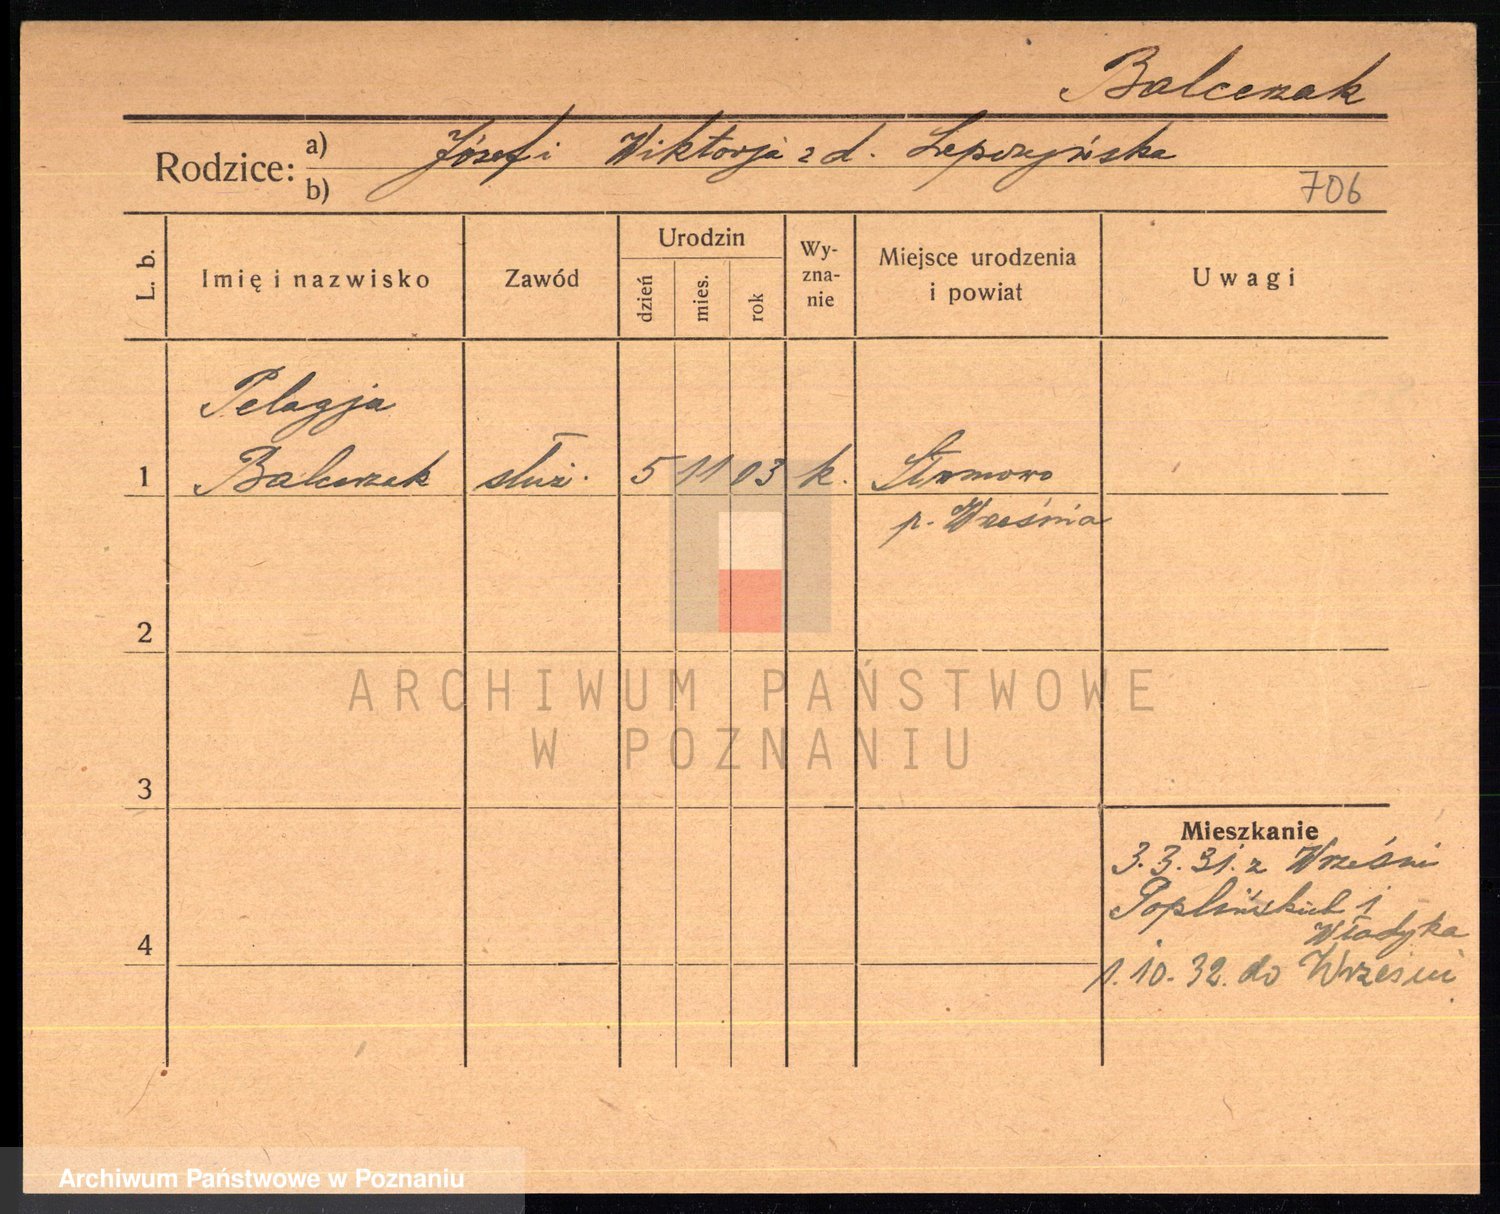 Balcerzak
Rodzice: a) Józef i Wiktorja z d. Lepczyńska
b)
706
L. b.
Imię i nazwisko
Zawód
Urodzin
dzień
mies.
rok
Wy-
zna-
nie
Miejsce urodzenia
i powiat
Uwagi
Pelagja
1 Balcerzak służ. 5 11 03 k.
p. Września
2
3
4
Mieszkanie
3.3.31. z Wrześni
Poplińskich 1
Władyka
1.10.32. do Wrześni
ARCHIWUM PAŃSTWOWE
W POZNANIU
Archiwum Państwowe w Poznaniu